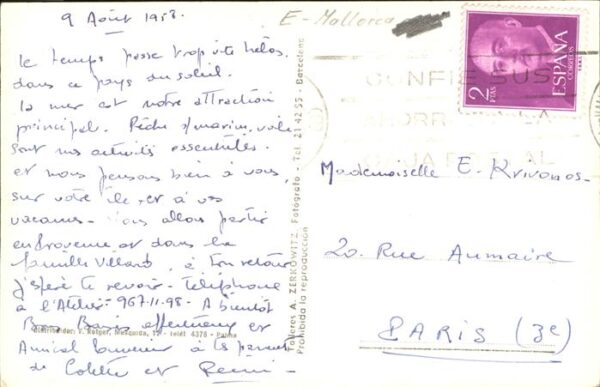 9 Août 1958.
E - Mallorca
le temps passe trop vite hélas,
dans ce pays du soleil.
la mer est notre attraction
principale. Pêche s/marine, voile
sont nos activités essentielles.
et nous pensons bien à vous,
sur votre île et à vos
vacances - Nous allons partir
en Provence et dans la
famille Villard, à ton retour
j'espère te revoir - téléphone
à l'Atelier - 967-11-98 - A bientôt
Bons Baisers affectueux et
Amical Souvenir à tes parents
de Colette et Rémi -
Talleres A. ZERKOWITZ, Fotógrafo - Tel. 21 42 55 - Barcelona
Prohibida la reproducción
Rotger, 4378 - Palma
2
PTAS
ESPAÑA
CORREOS
CONFIE SUS
AHORROS A LA
CAJA POSTAL
Mademoiselle E. Krivonos -
20. Rue Aumaire
PARIS (3e)